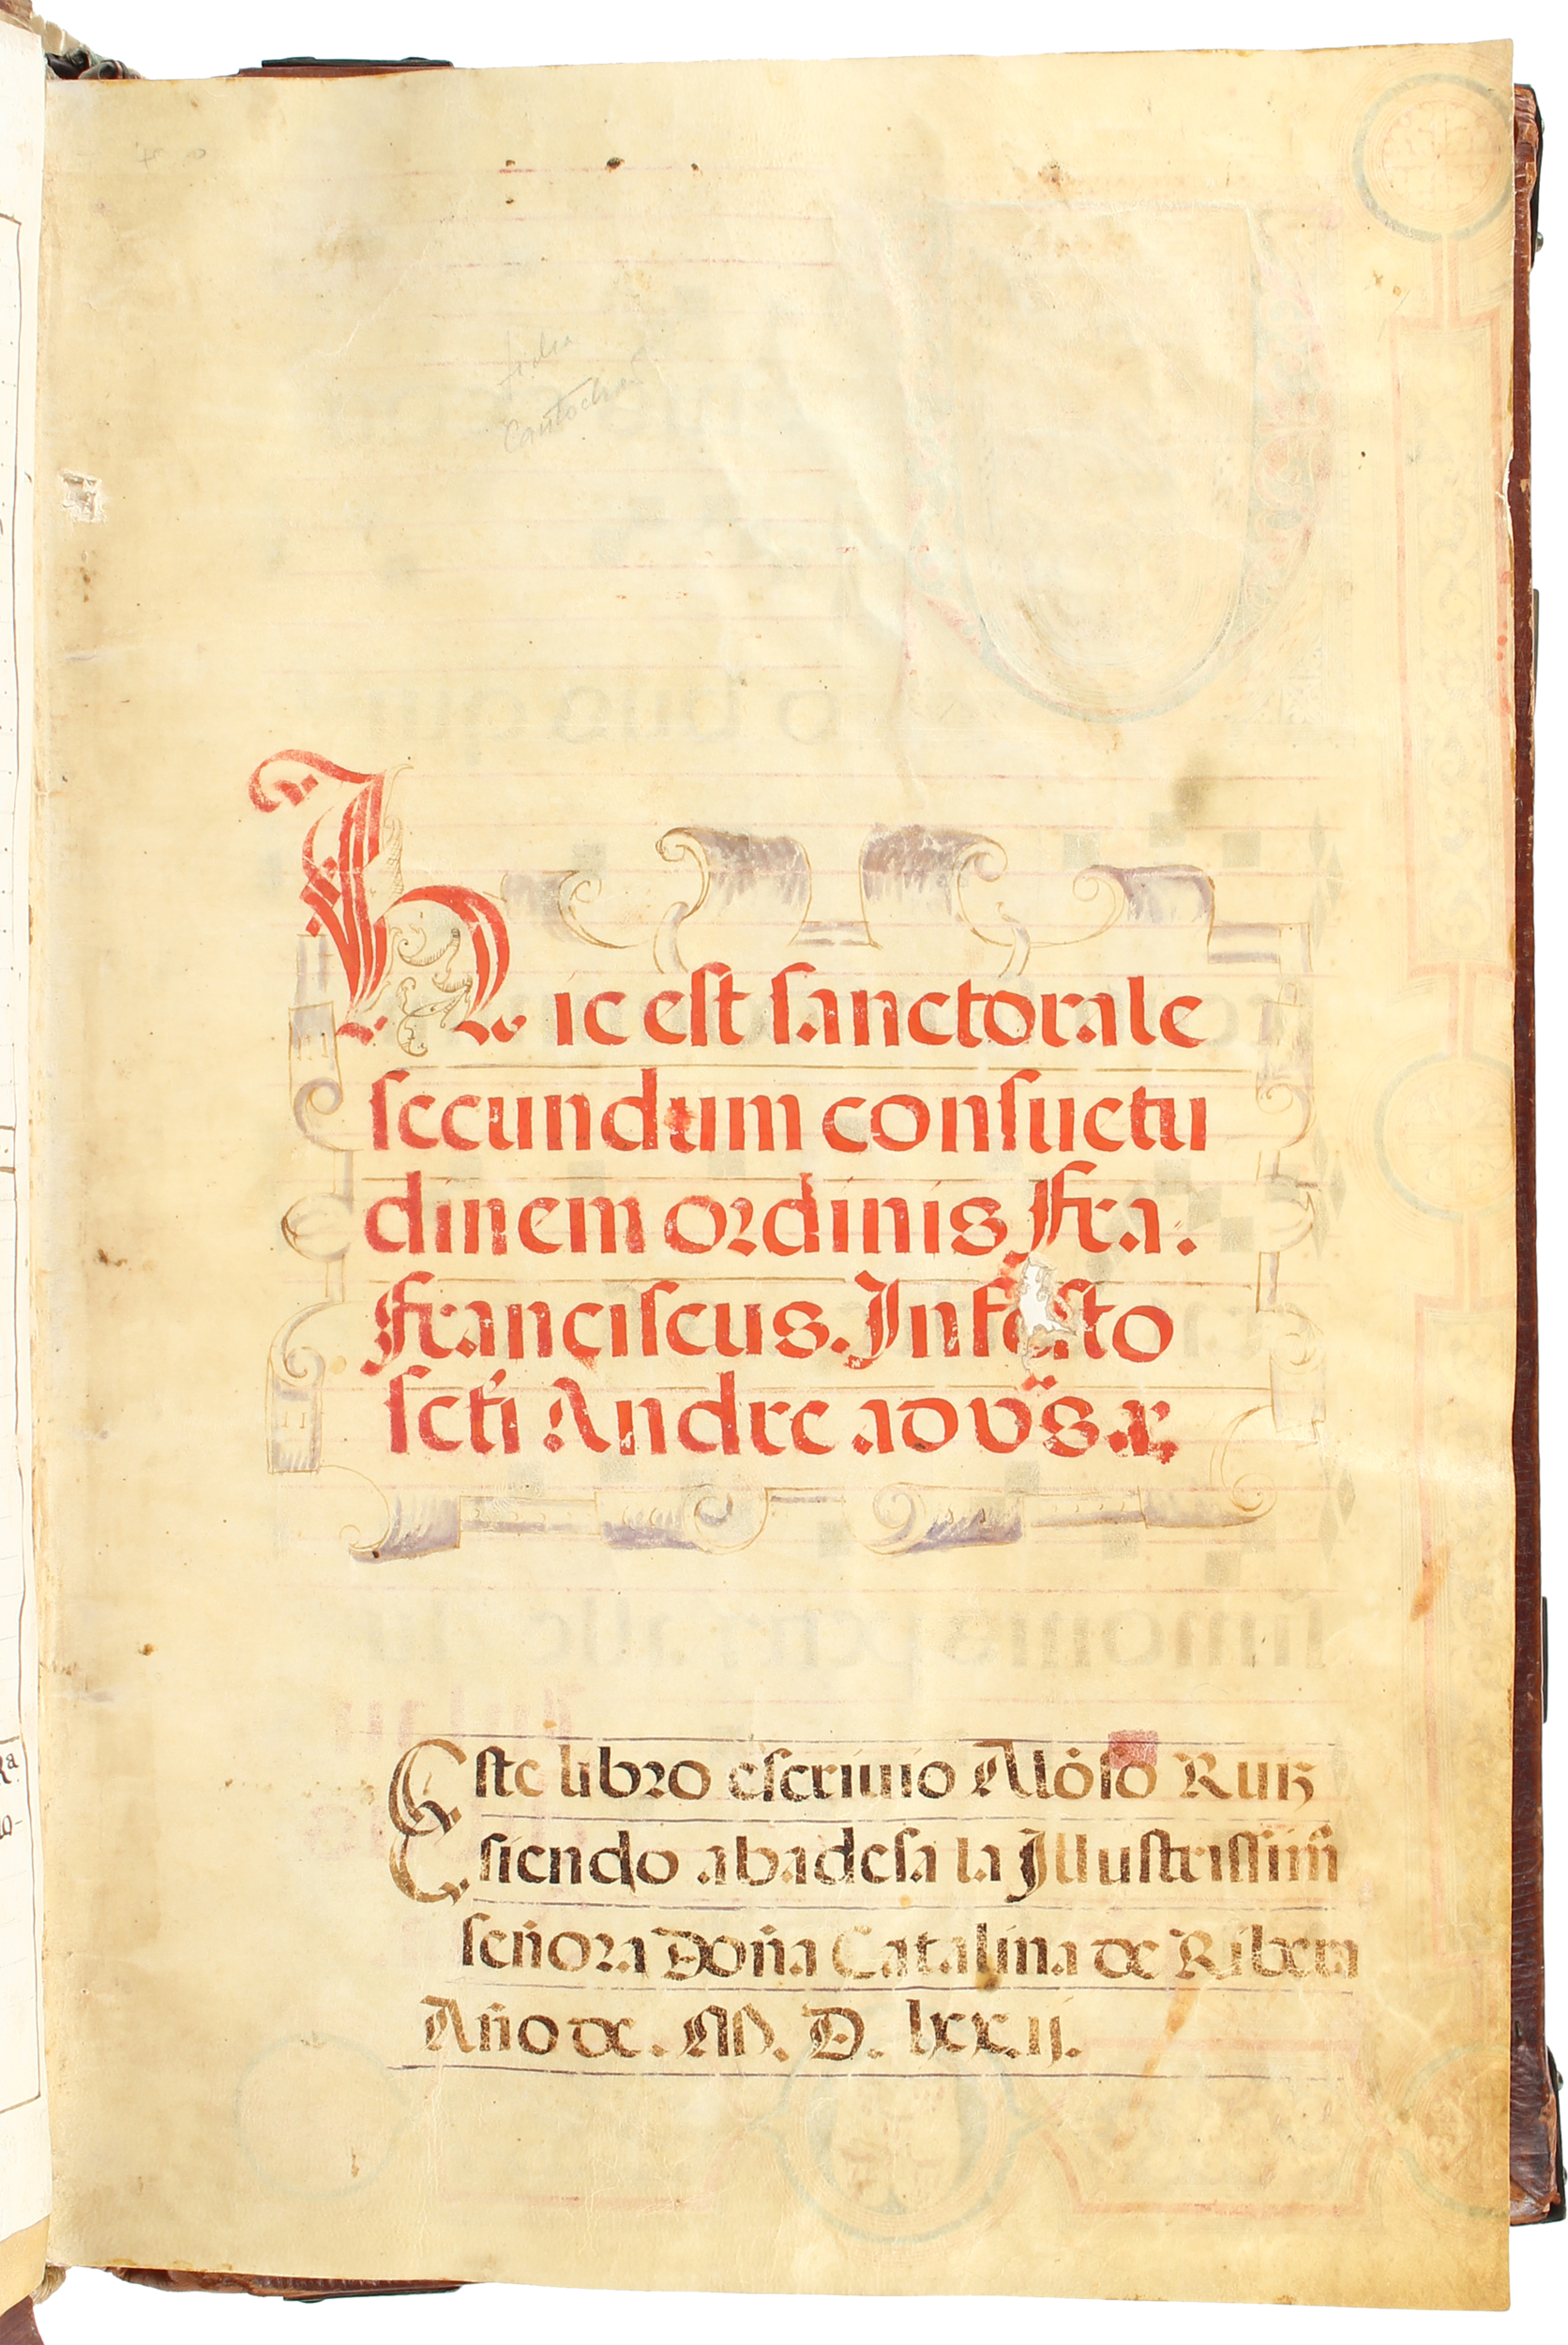 Hic est sanctorale
secundum consuetu
dinem ordinis Fra.
Franciscus. In festo
scti Andree ad vs̈ar̃
Este libro escriuio Alõso Ruiz
siendo abadesa la Illustrissim̃
señora Doña Catalina de Ribera
Año de. M. D. lxx.ij.